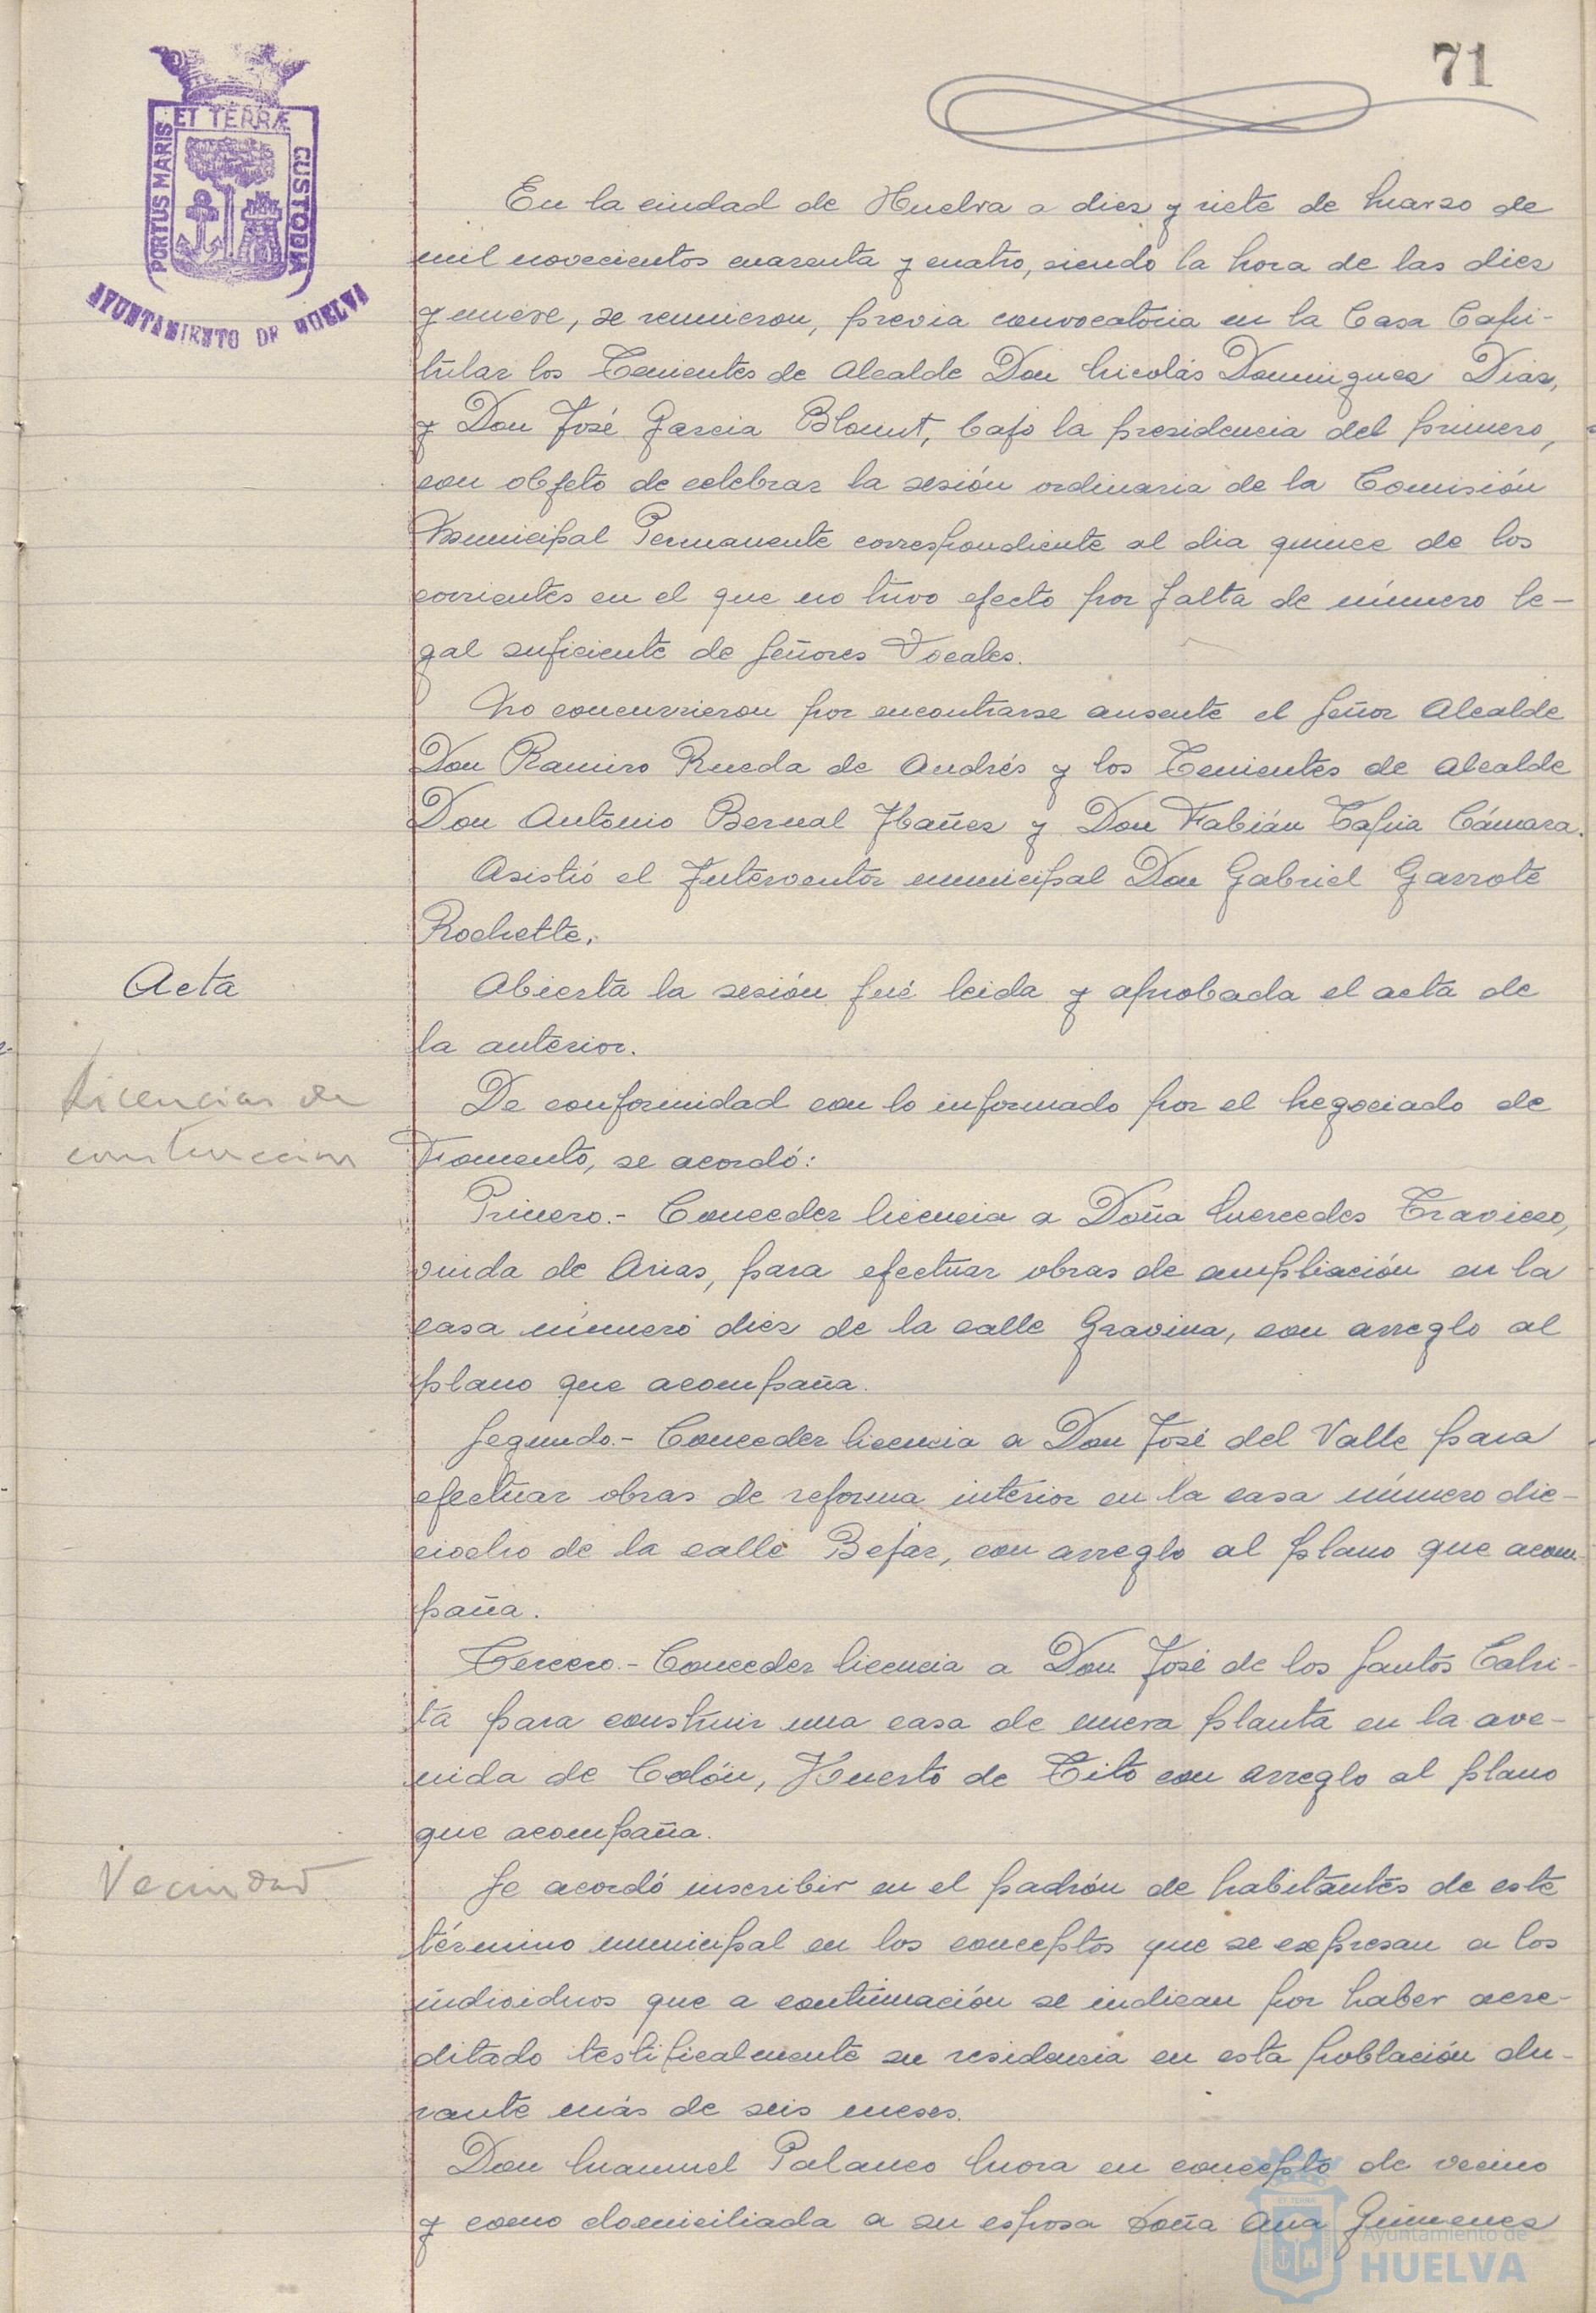 71
ET TERRÆ
PORTUS MARIS
CUSTODIA
AYUNTAMIENTO DE HUELVA
En la ciudad de Huelva a diez y siete de Marzo de
mil novecientos cuarenta y cuatro, siendo la hora de las diez
y nueve, se reunieron, previa convocatoria en la Casa Capi-
tular los Tenientes de Alcalde Don Nicolás Dominguez Diaz,
y Don José Garcia Blount, bajo la presidencia del primero,
con objeto de celebrar la sesión ordinaria de la Comisión
Municipal Permanente correspondiente al dia quince de los
corrientes en el que no tuvo efecto por falta de número le-
gal suficiente de Señores Vocales.
No concurrieron por encontrarse ausente el Señor Alcalde
Don Ramiro Rueda de Andrés y los Tenientes de Alcalde
Don Antonio Bernal Ibañez y Don Fabián Tapia Cámara.
Asistió el Interventor municipal Don Gabriel Garrote
Rochette.
Acta
Abierta la sesión fué leida y aprobada el acta de
la anterior.
Licencias de
construccion
De conformidad con lo informado por el Negociado de
Fomento, se acordó:
Primero.- Conceder licencia a Doña Mercedes Travieso,
viuda de Arias, para efectuar obras de ampliación en la
casa número diez de la calle Gravina, con arreglo al
plano que acompaña.
Segundo.- Conceder licencia a Don José del Valle para
efectuar obras de reforma interior en la casa número die-
ciocho de la calle Bejar, con arreglo al plano que acom-
paña.
Tercero.- Conceder licencia a Don José de los Santos
para construir una casa de nueva planta en la ave-
nida de Colón, Huerto de Tito con arreglo al plano
que acompaña.
Vecindad
Se acordó inscribir en el padrón de habitantes de este
término municipal en los conceptos que se expresan a los
individuos que a continuación se indican por haber acre-
ditado testificalmente su residencia en esta población du-
rante más de seis meses.
Don Manuel Palanco Mora en concepto de vecino
y como domiciliada a su esposa Doña Ana Gimenez
Ayuntamiento de
HUELVA